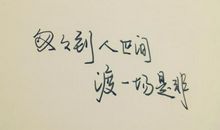 匆匆到人区间
渡一场是非